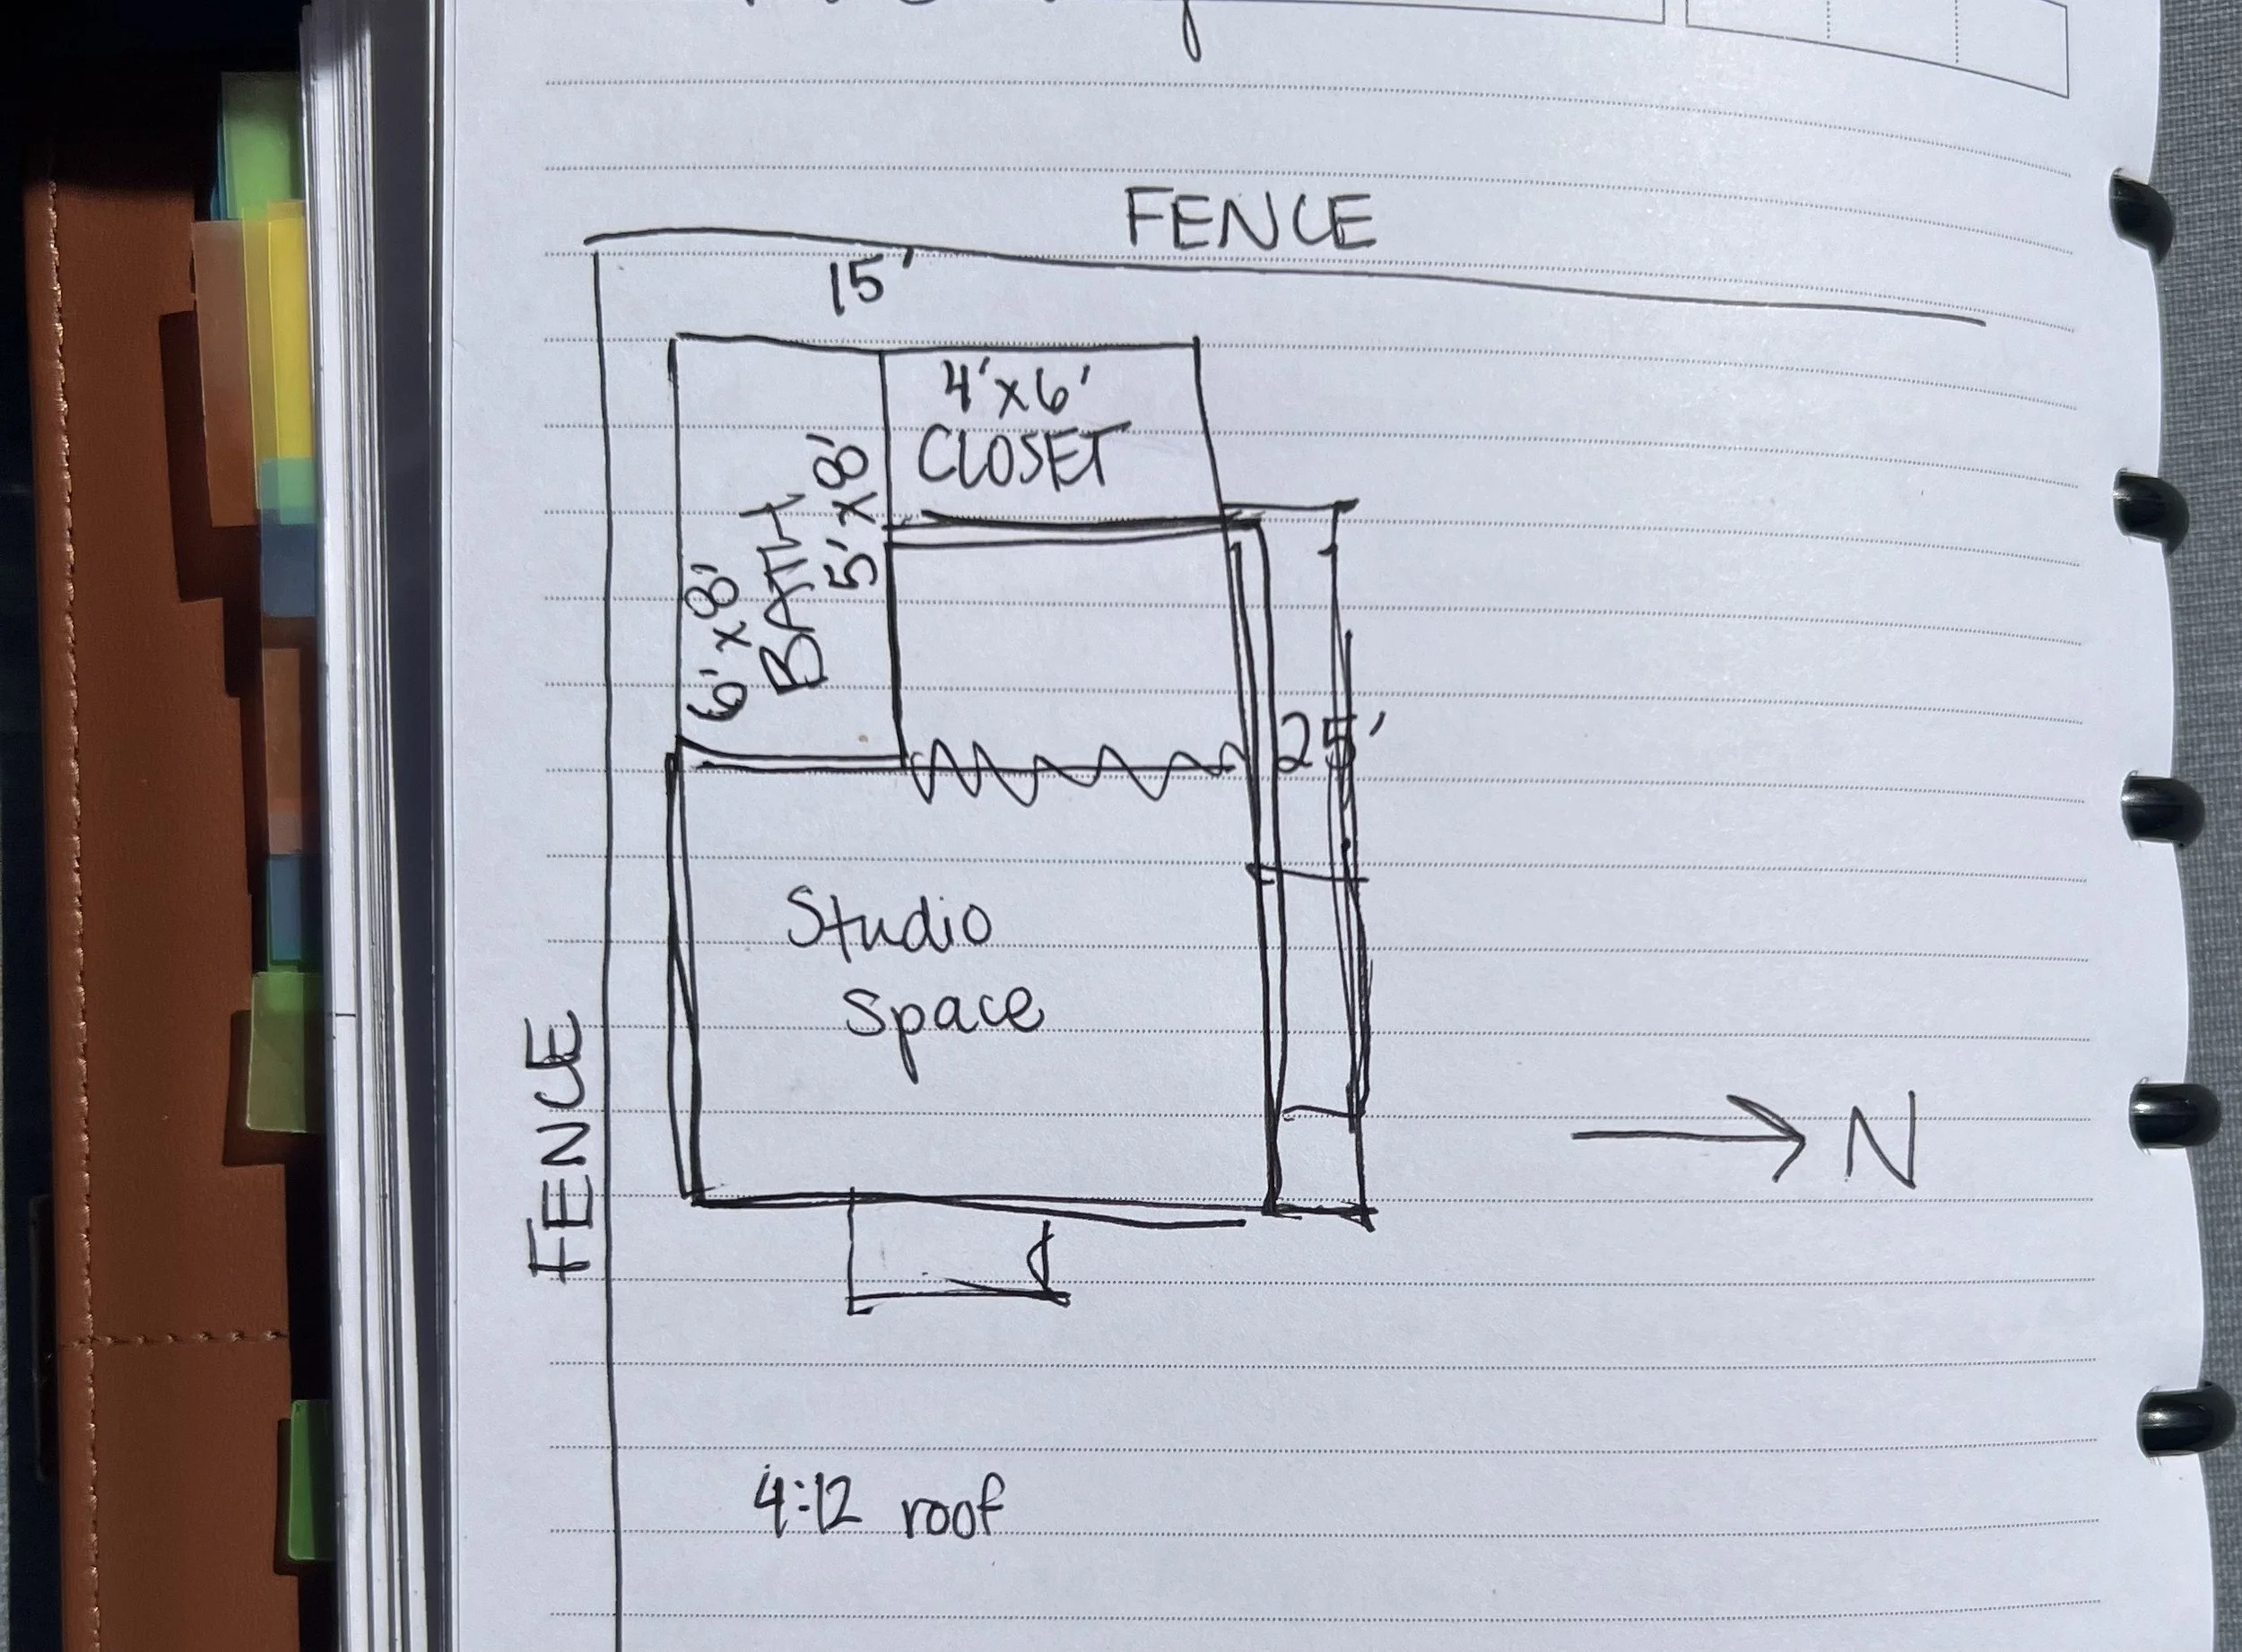 FENCE
15'
4'x6'
CLOSET
5' x 8'
BATH
6' x 8'
25'
Studio
space
N
FENCE
4:12 roof